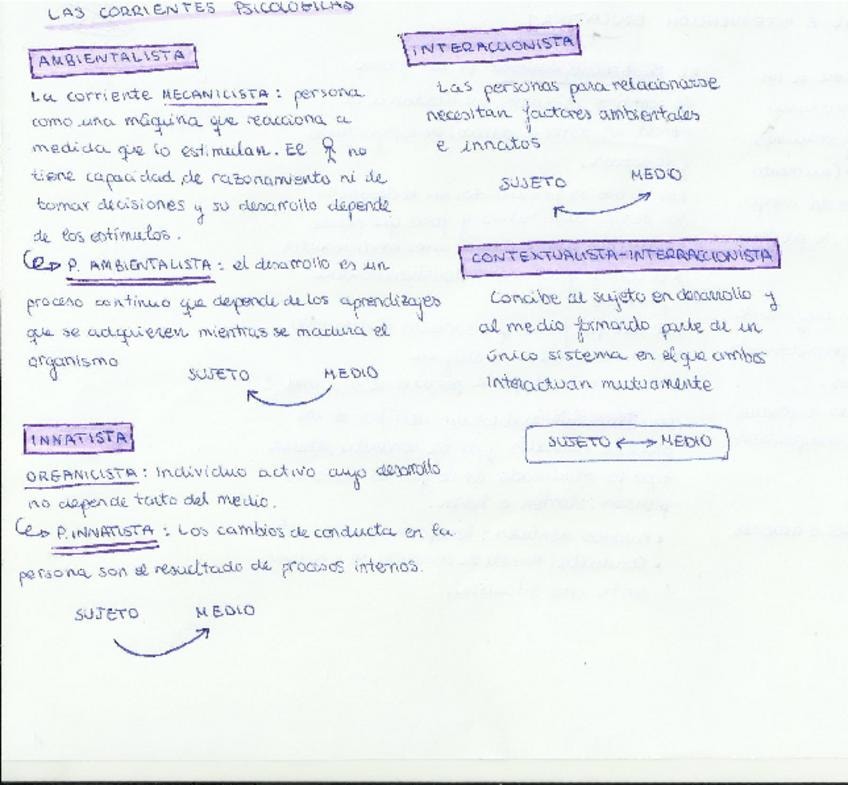 LAS CORRIENTES PSICOLÓGICAS
AMBIENTALISTA
La corriente MECANICISTA: persona
como una máquina que reacciona a
medida que lo estimulan. El no
tiene capacidad de razonamiento ni de
tomar decisiones y su desarrollo depende
de los estímulos.
P. AMBIENTALISTA: el desarrollo es un
proceso continuo que depende de los aprendizajes
que se adquieren mientras se madura el
organismo
SUJETO MEDIO
INNATISTA
ORGANICISTA: Individuo activo cuyo desarrollo
no depende tanto del medio.
P. INNATISTA: Los cambios de conducta en la
persona son el resultado de procesos internos.
SUJETO MEDIO
INTERACCIONISTA
Las personas para relacionarse
necesitan factores ambientales
e innatos
SUJETO MEDIO
CONTEXTUALISTA-INTERACCIONISTA
Concibe al sujeto en desarrollo y
al medio formando parte de un
único sistema en el que ambos
interactuan mutuamente
SUJETO ↔ MEDIO